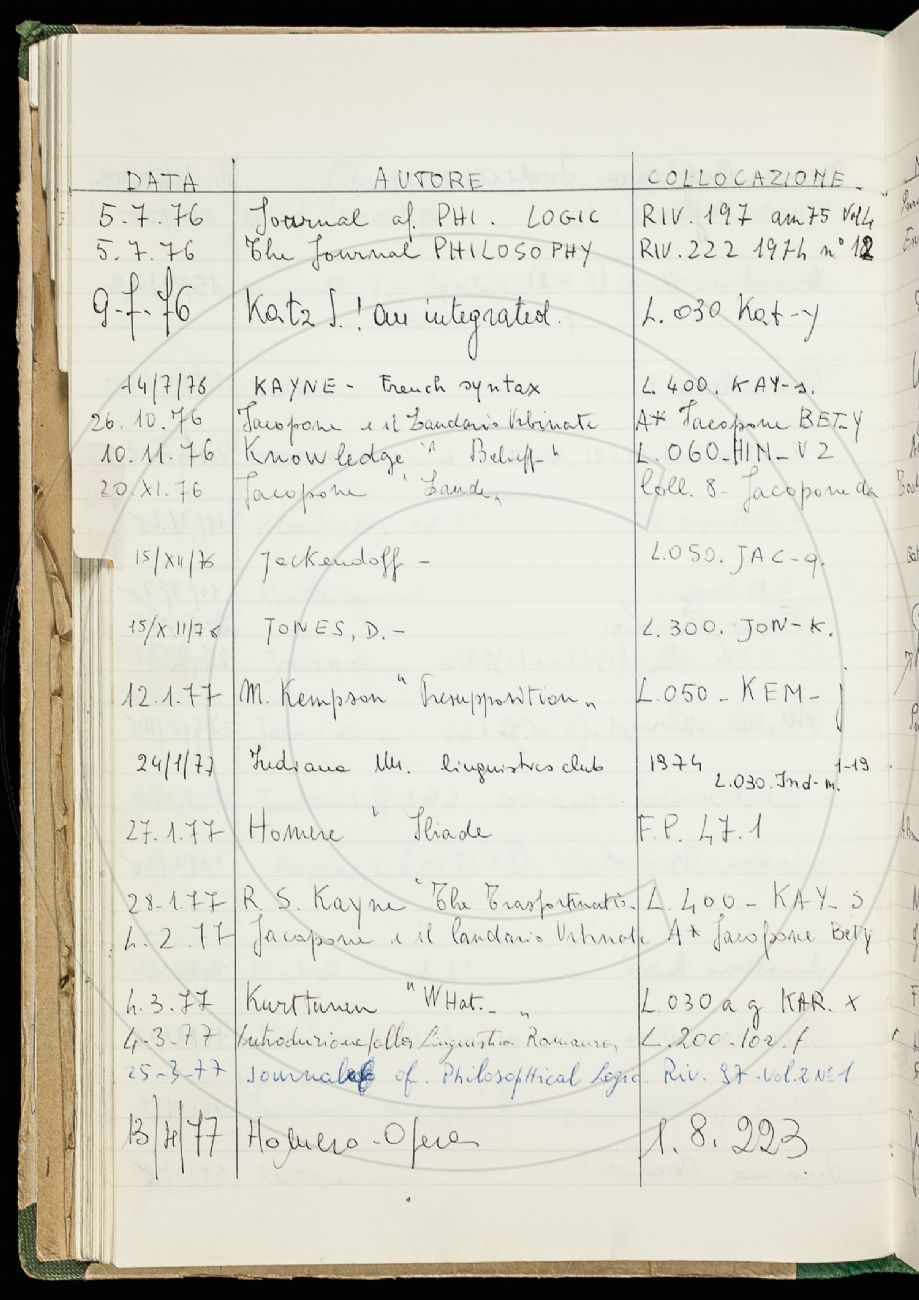 DATA AUTORE COLLOCAZIONE
5.7.76 Journal of PHI. LOGIC RIV. 197 ann 75 Vol 4
5.7.76 The Journal PHILOSOPHY RIV. 222 1974 n° 12
9-7-76 Katz J. ! An integrated. L. 030 Kat-y
14/7/76 KAYNE - French syntax L. 400. KAY-s.
26.10.76 Jacopone e il Laudario Urbinate A* Jacopone BET-Y
10.11.76 Knowledge " Belief " L. 060-HIN-V2
20.XI.76 Jacopone "Laude" Coll. 8- Jacopone da
15/XII/76 Jackendoff - L.050. JAC-q.
15/XII/76 JONES, D.- L. 300. JON-K.
12.1.77 M. Kempson "Presupposition" L.050 - KEM- j
24/1/77 Indiana Un. linguistics club 1974 L.030. Ind-m. 1-19
27.1.77 Homere " Iliade F.P. 47.1
28.1.77 R. S. Kayne "The L. 400 - KAY-s
4.2.77 Jacopone e il laudario Urbinate A* Jacopone Bety
4.3.77 Karttunen "WHat.- " L.030 a g KAR. x
4-3-77 Introduzione alla Linguistica Romanza L. 200.
25-3-77 Journal of. Philosophical Logic. Riv. 97-Vol.2 N° 1
13/4/77 Homero - Opera 1. 8. 223